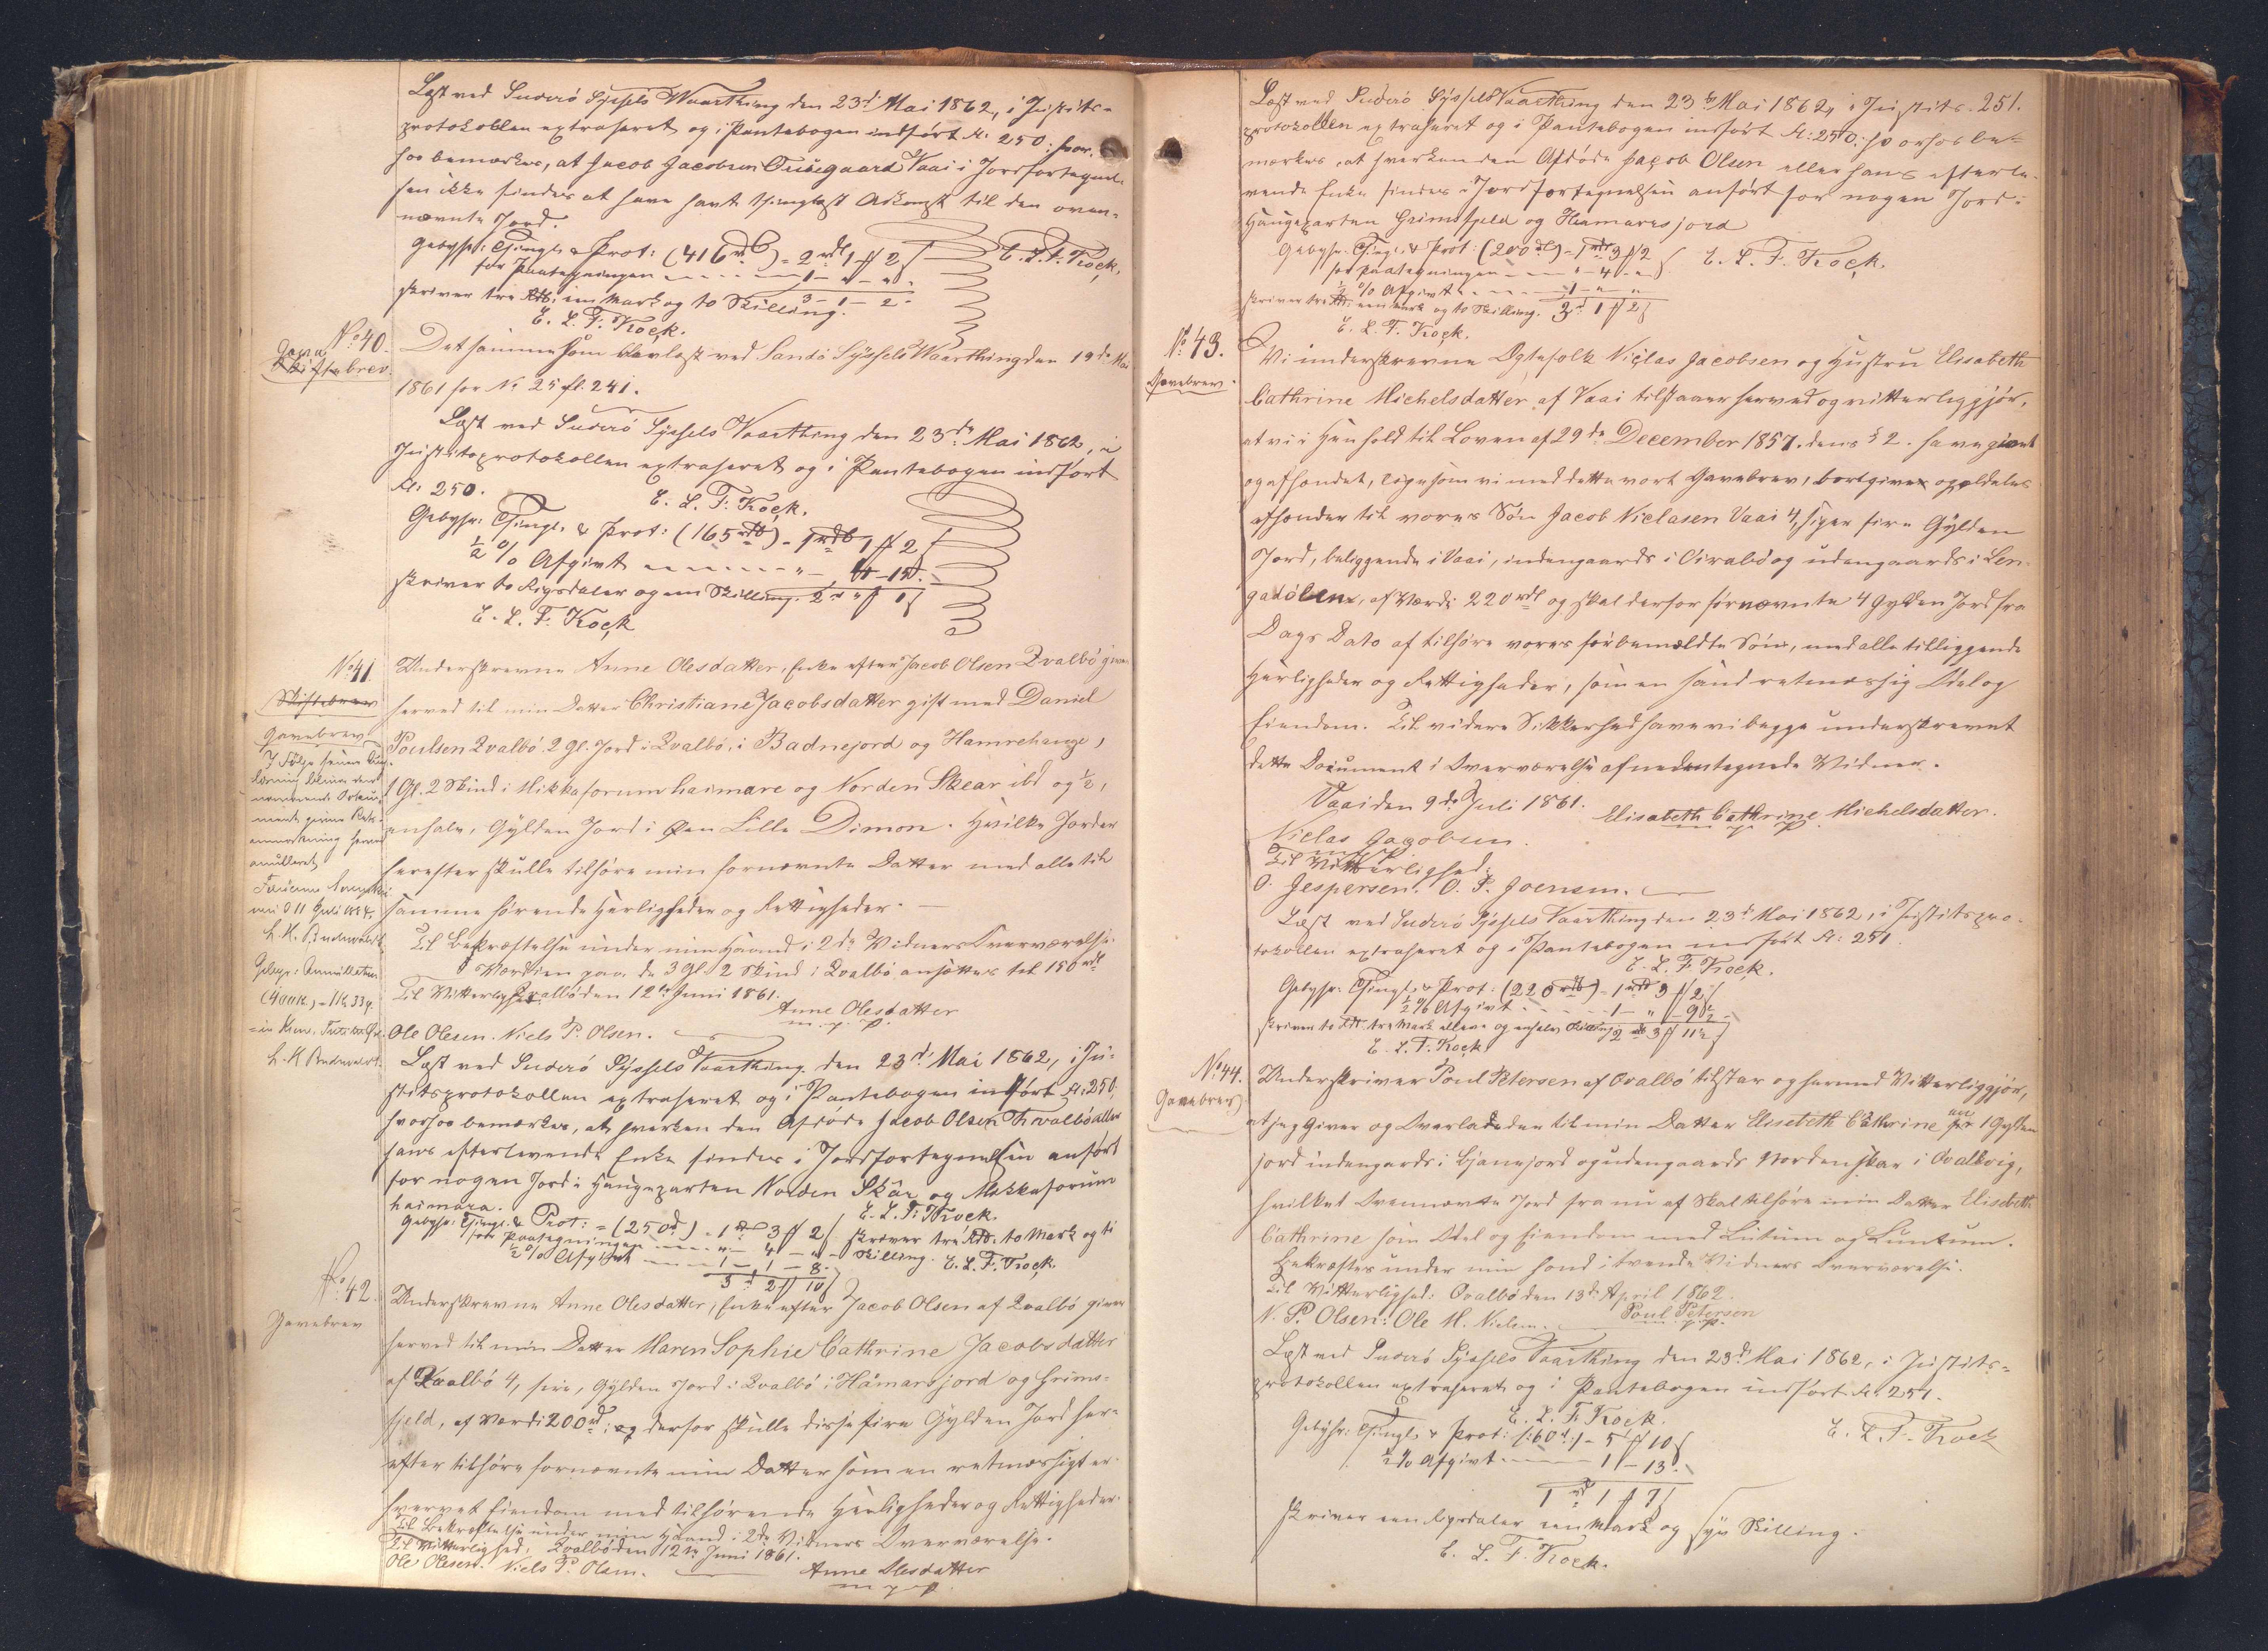 Læst ved Suderö Syssels Vaarthing den 23d. Mai 1862, i Justits-
protokollen extraheret og i Pantebogen indført fl. 250; hvor-
hos bemærkes, at Jacob Jacobsen Tuðegaard Vaai i Jordfortegnel-
sen ikke findes at have havt thinglæst Adkomst til den oven-
nævnte Jord.
Gebyhr: Thingl. & Prot: (416 rdl) = 2 rdl 1 ℳ 2 ß
E. L. F. Kock.
for Paategningen 1 - " - "
3 - 1 - 2.
skriver tre Rdl. een Mark og to Skilling.
E. L. F. Kock.
No. 40.
Skiftebrev.
Det samme som blev læst ved Sandö Syssels Vaarthing den 19de Mai
1861 for No 25 fl. 241.
Læst ved Suderö Syssels Vaarthing den 23de Mai 1862, i
Justitsprotokollen extraheret og i Pantebogen indført
fl: 250.
E. L. F. Kock.
Gebyhr: Thingl. & Prot: (165 rdl) - 1 rdl 1 ℳ 2 ß
½ % Afgivt " - 4 - 15.
skriver to Rigsdaler og een Skilling. 2 rd " ℳ 1 ß
E. L. F. Kock
No. 41
Skiftebrev
Gavebrev
Underskrevne Anne Olesdatter, Enke efter Jacob Olsen Qvalbö giver
herved til min Datter Christiane Jacobsdatter gift med Daniel
Poulsen Qvalbö 2 Gl. Jord i Qvalbö, i Badnejord og Hamrehauge,
1 Gl. 2 Skind i Mikkaforumhaimare og Norden Skear ibd og ½,
en halv, Gylden Jord i Øen Lille Dimon. Hvilke Jorder
herefter skulle tilhøre min fornævnte Datter med alle til
samme hørende Herligheder og Rettigheder.
Til Bekræftelse under min Haand i 2de Vidners Overværelse.
Værdien paa de 3 Gl. 2 Skind i Qvalbö ansættes til 150 rdl
Til Vitterlighed Qvalbö den 12te Juni 1861.
Anne Olesdatter
m. p. P.
Ole Olesen. Niels P. Olsen.
I Følge senere
anulleret
11 Juli 1884.
Læst ved Suderö Syssels Vaarthing den 23d. Mai 1862, i Ju-
stitsprotokollen extraheret og i Pantebogen indført fl. 250,
hvorhos bemærkes, at hverken den Afdøde Jacob Olsen Qvalbö eller
hans efterlevende Enke findes i Jordfortegnelsen anført
for nogen Jord i Haugeparten Norden Skär og Mikkaforum
haimara.
E. L. F. Kock.
Gebyhr: Thingl. & Prot: = (250 d) - 1 rd 3 ℳ 2 ß skriver tre Rdl. to Mark og ti
for Paategningen " - 4 - " - Skilling. E. L. F. Kock.
½ % Afgivt 1 - 1 - 8.
3 d 2 ℳ 10 ß
No. 42.
Gavebrev
Underskrevne Anne Olesdatter, Enke efter Jacob Olsen af Qvalbö giver
herved til min Datter Maren Sophie Cathrine Jacobsdatter
af Qvalbö 4, fire, Gylden Jord i Qvalbö i Hamaresjord og Grims-
fjeld, af Værdi 200 rd; og derfor skulle disse fire Gylden Jord her-
efter tilhøre fornævnte min Datter som en retmæssigt er-
hvervet Eiendom med tilhørende Herligheder og Rettigheder.
Til Bekræftelse under min Haand i 2de Vidners Overværelse.
Til Vitterlighed. Qvalbö den 12te Juni 1861.
Ole Olesen. Niels P. Olsen.
Anne Olesdatter
m. p. P.
251.
Læst ved Suderö Syssels Vaarthing den 23de Mai 1862, i Justits-
protokollen extraheret og i Pantebogen indført fl: 250. hvorhos be-
mærkes, at hverken den Afdøde Jacob Olsen eller hans efterle-
vende Enke findes i Jordfortegnelsen anført for nogen Jord i
Haugeparten Grimsfjeld og Hamaresjord
Gebyhr: Thingl. & Prot: (200 rdl) - 1 rdl 3 ℳ 2 ß E. L. F. Kock.
for Paategningen " - 4 - "
½ % Afgivt 1 - " "
skriver tre Rdl. een Mark og to Skilling. 3 d 1 ℳ 2 ß
E. L. F. Kock.
No. 43.
Gavebrev.
Vi underskrevne Ægtefolk Niclas Jacobsen og Hustru Elisabeth
Cathrine Michelsdatter af Vaai tilstaaer herved og vitterliggjør,
at vi i Henhold til Loven af 29de December 1857. dens § 2. have givet
og afhændet, ligesom vi med dette vort Gavebrev, bortgiver og aldeles
afhænder til vores Søn Jacob Niclasen Vaai 4, siger fire Gylden
Jord, beliggende i Vaai, indengaards i Virabø og udengaards i Len-
gadölen, af Værdi 220 rdl og skal derfor førnævnte 4 Gylden Jord fra
Dags Dato af tilhøre vores forbemældte Søn, med alle tilliggende
Herligheder og Rettigheder, som en sand retmæssig Odel og
Eiendom. Til videre Sikkerhed have vi begge underskrevet
dette Document i Overværelse af nedentegnede Vidner.
Vaai den 9de Juli 1861.
Elisabeth Cathrine Michelsdatter.
m. p. P.
Niclas Jacobsen.
Til Vitterlighed:
O. Jespersen. O. P. Joensen.
Læst ved Suderö Syssels Vaarthing den 23d. Mai 1862, i Justitspro-
tokollen extraheret og i Pantebogen indført fl: 251.
E. L. F. Kock.
Gebyhr: Thingl. & Prot: (220 rdl) - 1 rdl 3 ℳ 2 ß
½ % Afgivt 1 - " - 9½ -
skriver to Rdl. tre Mark elleve og enhalv Skilling 2 rd 3 ℳ 11½ ß
E. L. F. Kock
No. 44.
Gavebrev
Underskriver Poul Petersen af Qvalbö tilstar og hermed Vitterliggjør,
at jeg Giver og Overladeder til min Datter Elisebeth Cathrine en 1 Gylden
jord indengards i Bjanejord og udengaards Nordenskar i Qvalvig,
hvilket Ovennævnte Jord fra nu af Skal tilhøre min Datter Elisebeth
Cathrine som Odel og Eiendom med Lutum og Luntum.
Bekræftes under min Hond i tvende Vidners Overværelse.
Til Vitterlighed: Qvalbö den 13de April 1862.
Poul Petersen
m. p. P.
N. P. Olsen. Ole M. Nielsen.
Læst ved Suderö Syssels Vaarthing den 23d. Mai 1862, i Justits-
protokollen extraheret og i Pantebogen indført fl. 251.
E. L. F. Kock.
Gebyhr: Thingl. & Prot: (: 60 d :) - 5 ℳ 10 ß
E. L. F. Kock
½ % Afgivt 1 - 13.
1 rd 1 ℳ 7 ß
skriver een Rigsdaler een Mark og syv Skilling.
E. L. F. Kock.